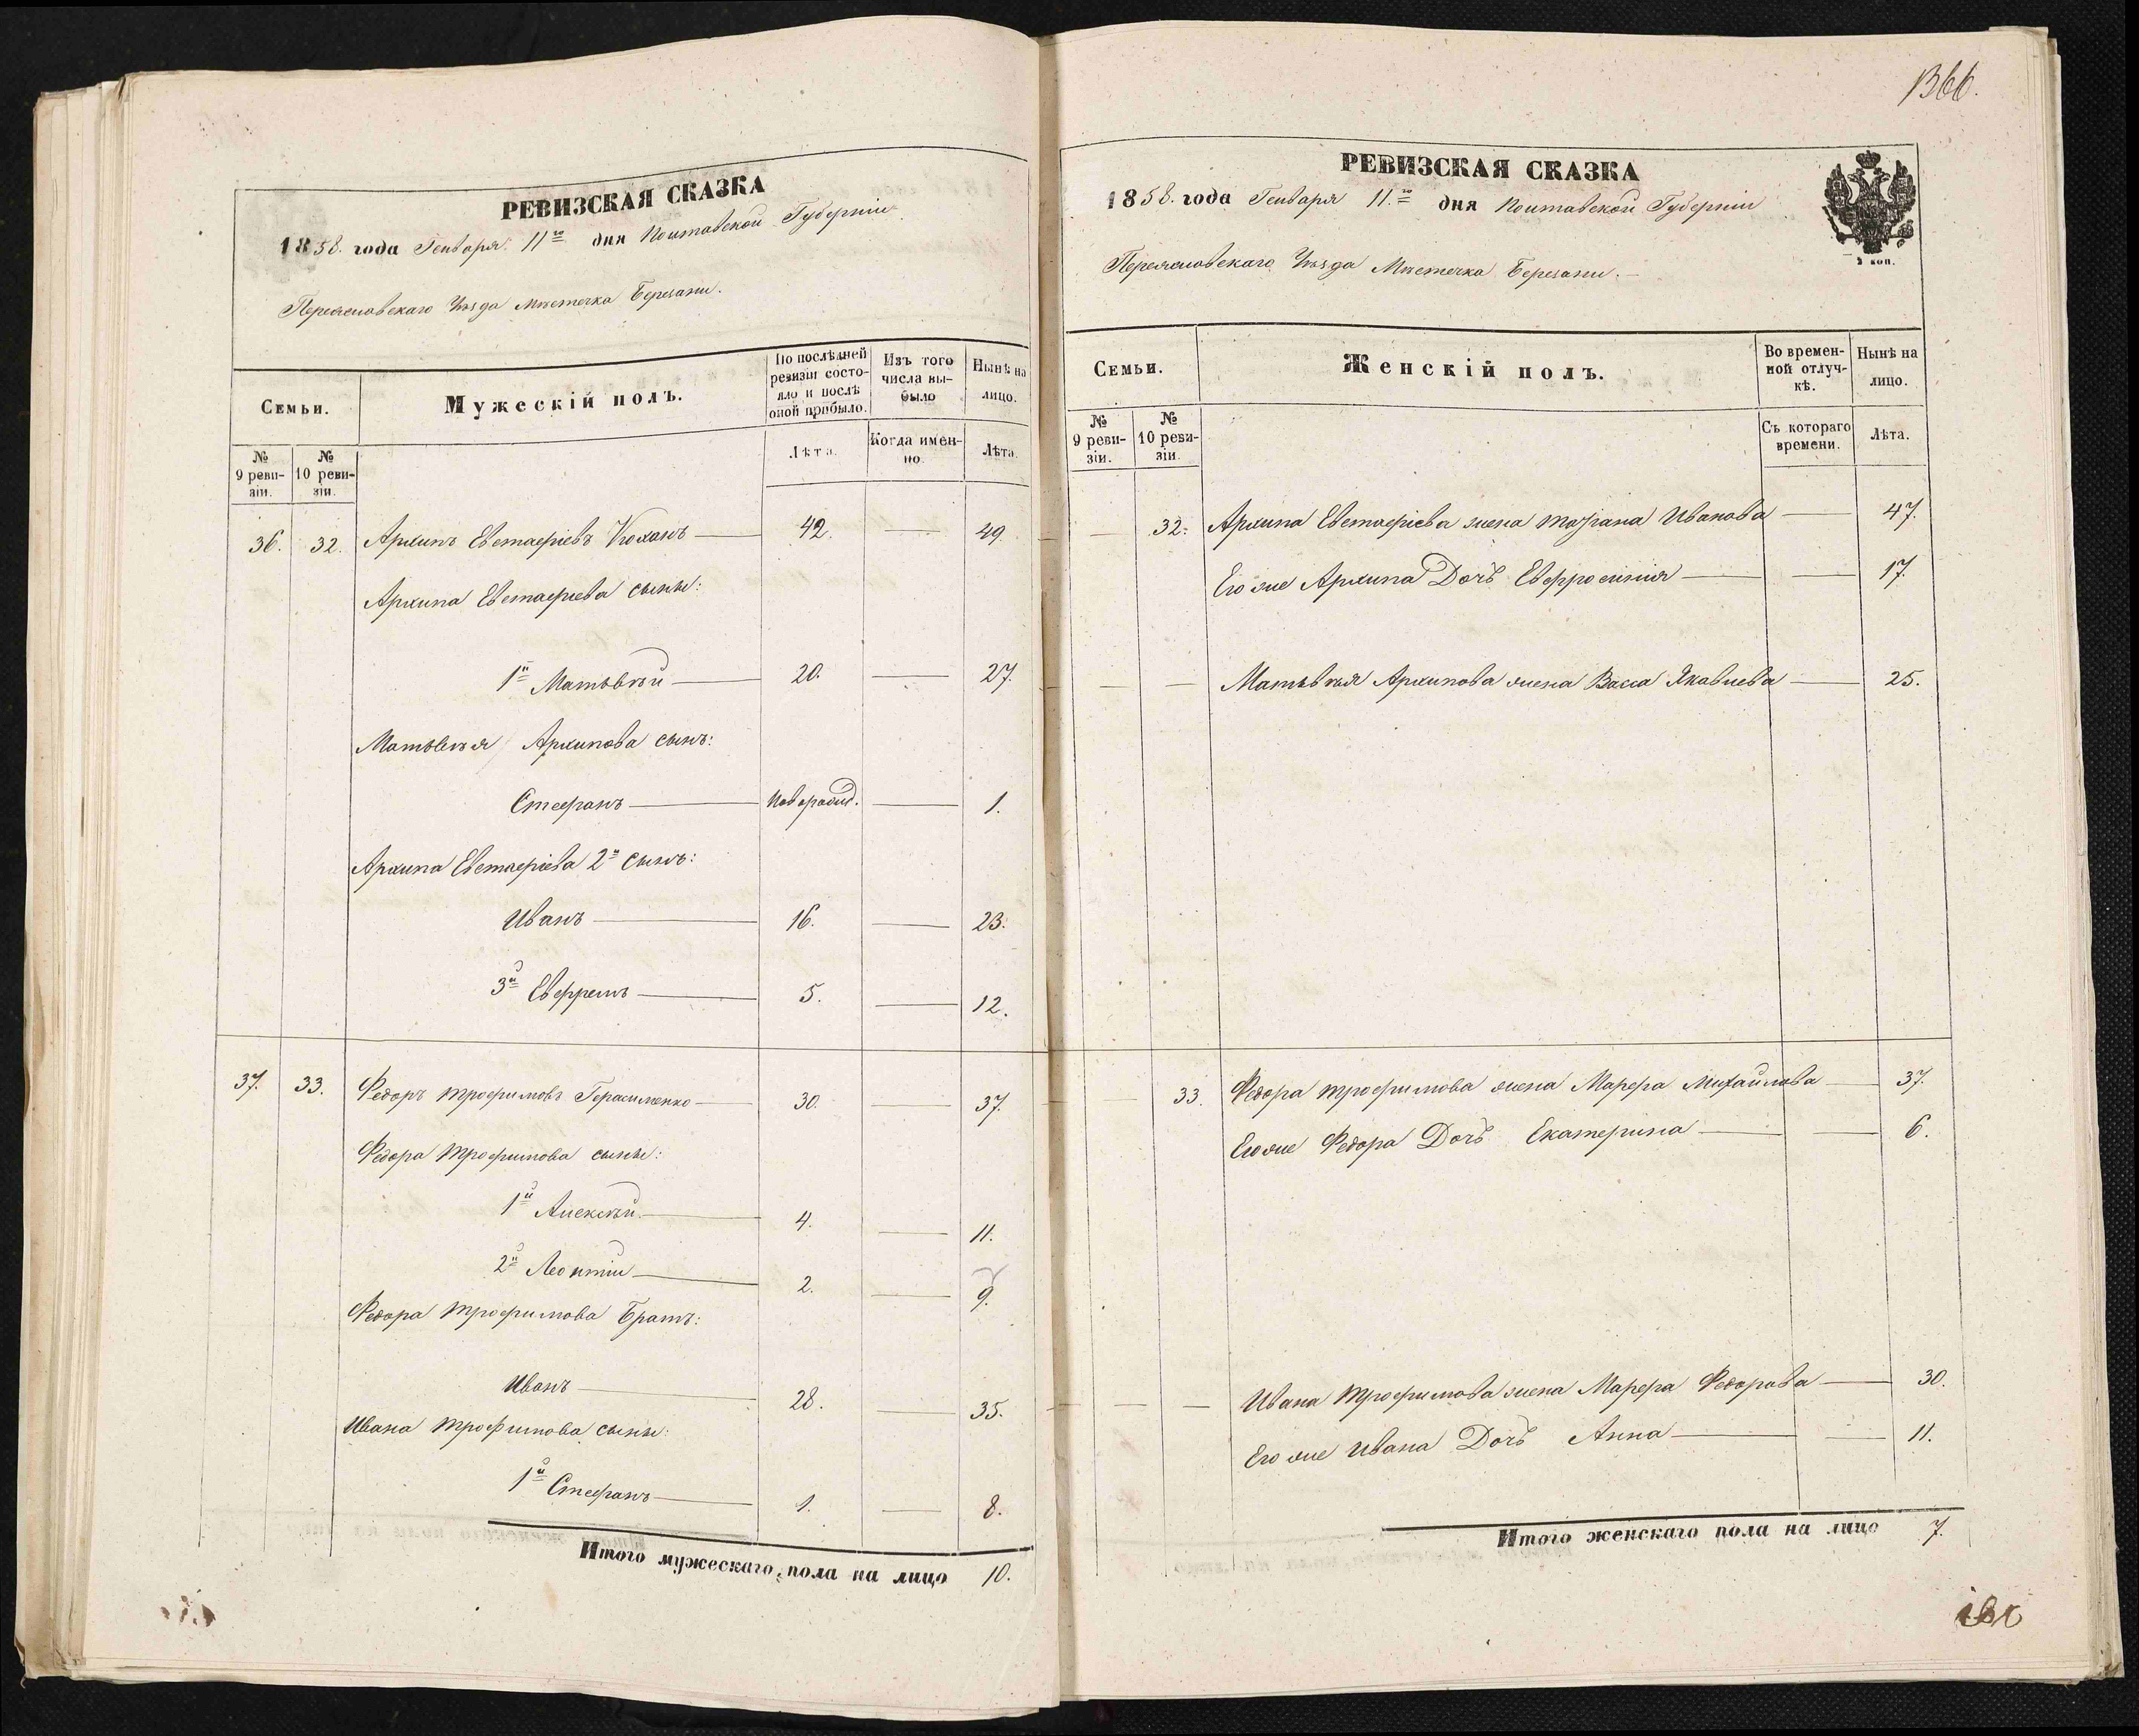 РЕВИЗСКАЯ СКАЗКА
1858. года Генваря 11го дня Полтавской Губерніи
Переяславскаго Уѣзда Мѣстечка Березани.
Семьи.
Мужескій полъ.
По послѣдней ревизіи состояло и послѣ оной прибыло.
Изъ того числа выбыло
Нынѣ на лицо.
№ 9 ревизіи.
№ 10 ревизіи.
Лѣта.
Когда именно.
Лѣта.
36. 32. Архипъ Евстафіевъ Коханъ 42. — 49.
Архипа Евстафіева сыны:
1й Матвѣй 20. — 27.
Матвѣя Архипова сынъ:
Стефанъ новорожд. — 1.
Архипа Евстафіева 2й сынъ:
Иванъ 16. — 23.
3й Евфремъ 5. — 12.
37. 33. Федоръ Трофимовъ Герасименко 30. — 37.
Федора Трофимова сыны:
1й Алексѣй 4. — 11.
2й Леонтій 2. — 9.
Федора Трофимова Братъ:
Иванъ 28. — 35.
Ивана Трофимова сыны:
1й Стефанъ 1. — 8.
Итого мужескаго пола на лицо 10.
1366.
РЕВИЗСКАЯ СКАЗКА
1858. года Генваря 11.го дня Полтавской Губерніи
Переяславскаго Уѣзда Мѣстечка Березани.
Семьи.
Женскій полъ.
Во временной отлучкѣ.
Нынѣ на лицо.
№ 9 ревизіи.
№ 10 ревизіи.
Съ котораго времени.
Лѣта.
— 32. Архипа Евстафіева жена Татіана Иванова — 47.
Его же Архипа Дочь Евфросинія — 17.
— — Матвѣя Архипова жена Васса Яковлева — 25.
— 33. Федора Трофимова жена Марфа Михайлова — 37.
Его же Федора Дочь Екатерина — 6.
— — Ивана Трофимова жена Марфа Федорова — 30.
Его же Ивана Дочь Анна — 11.
Итого женскаго пола на лицо 7.